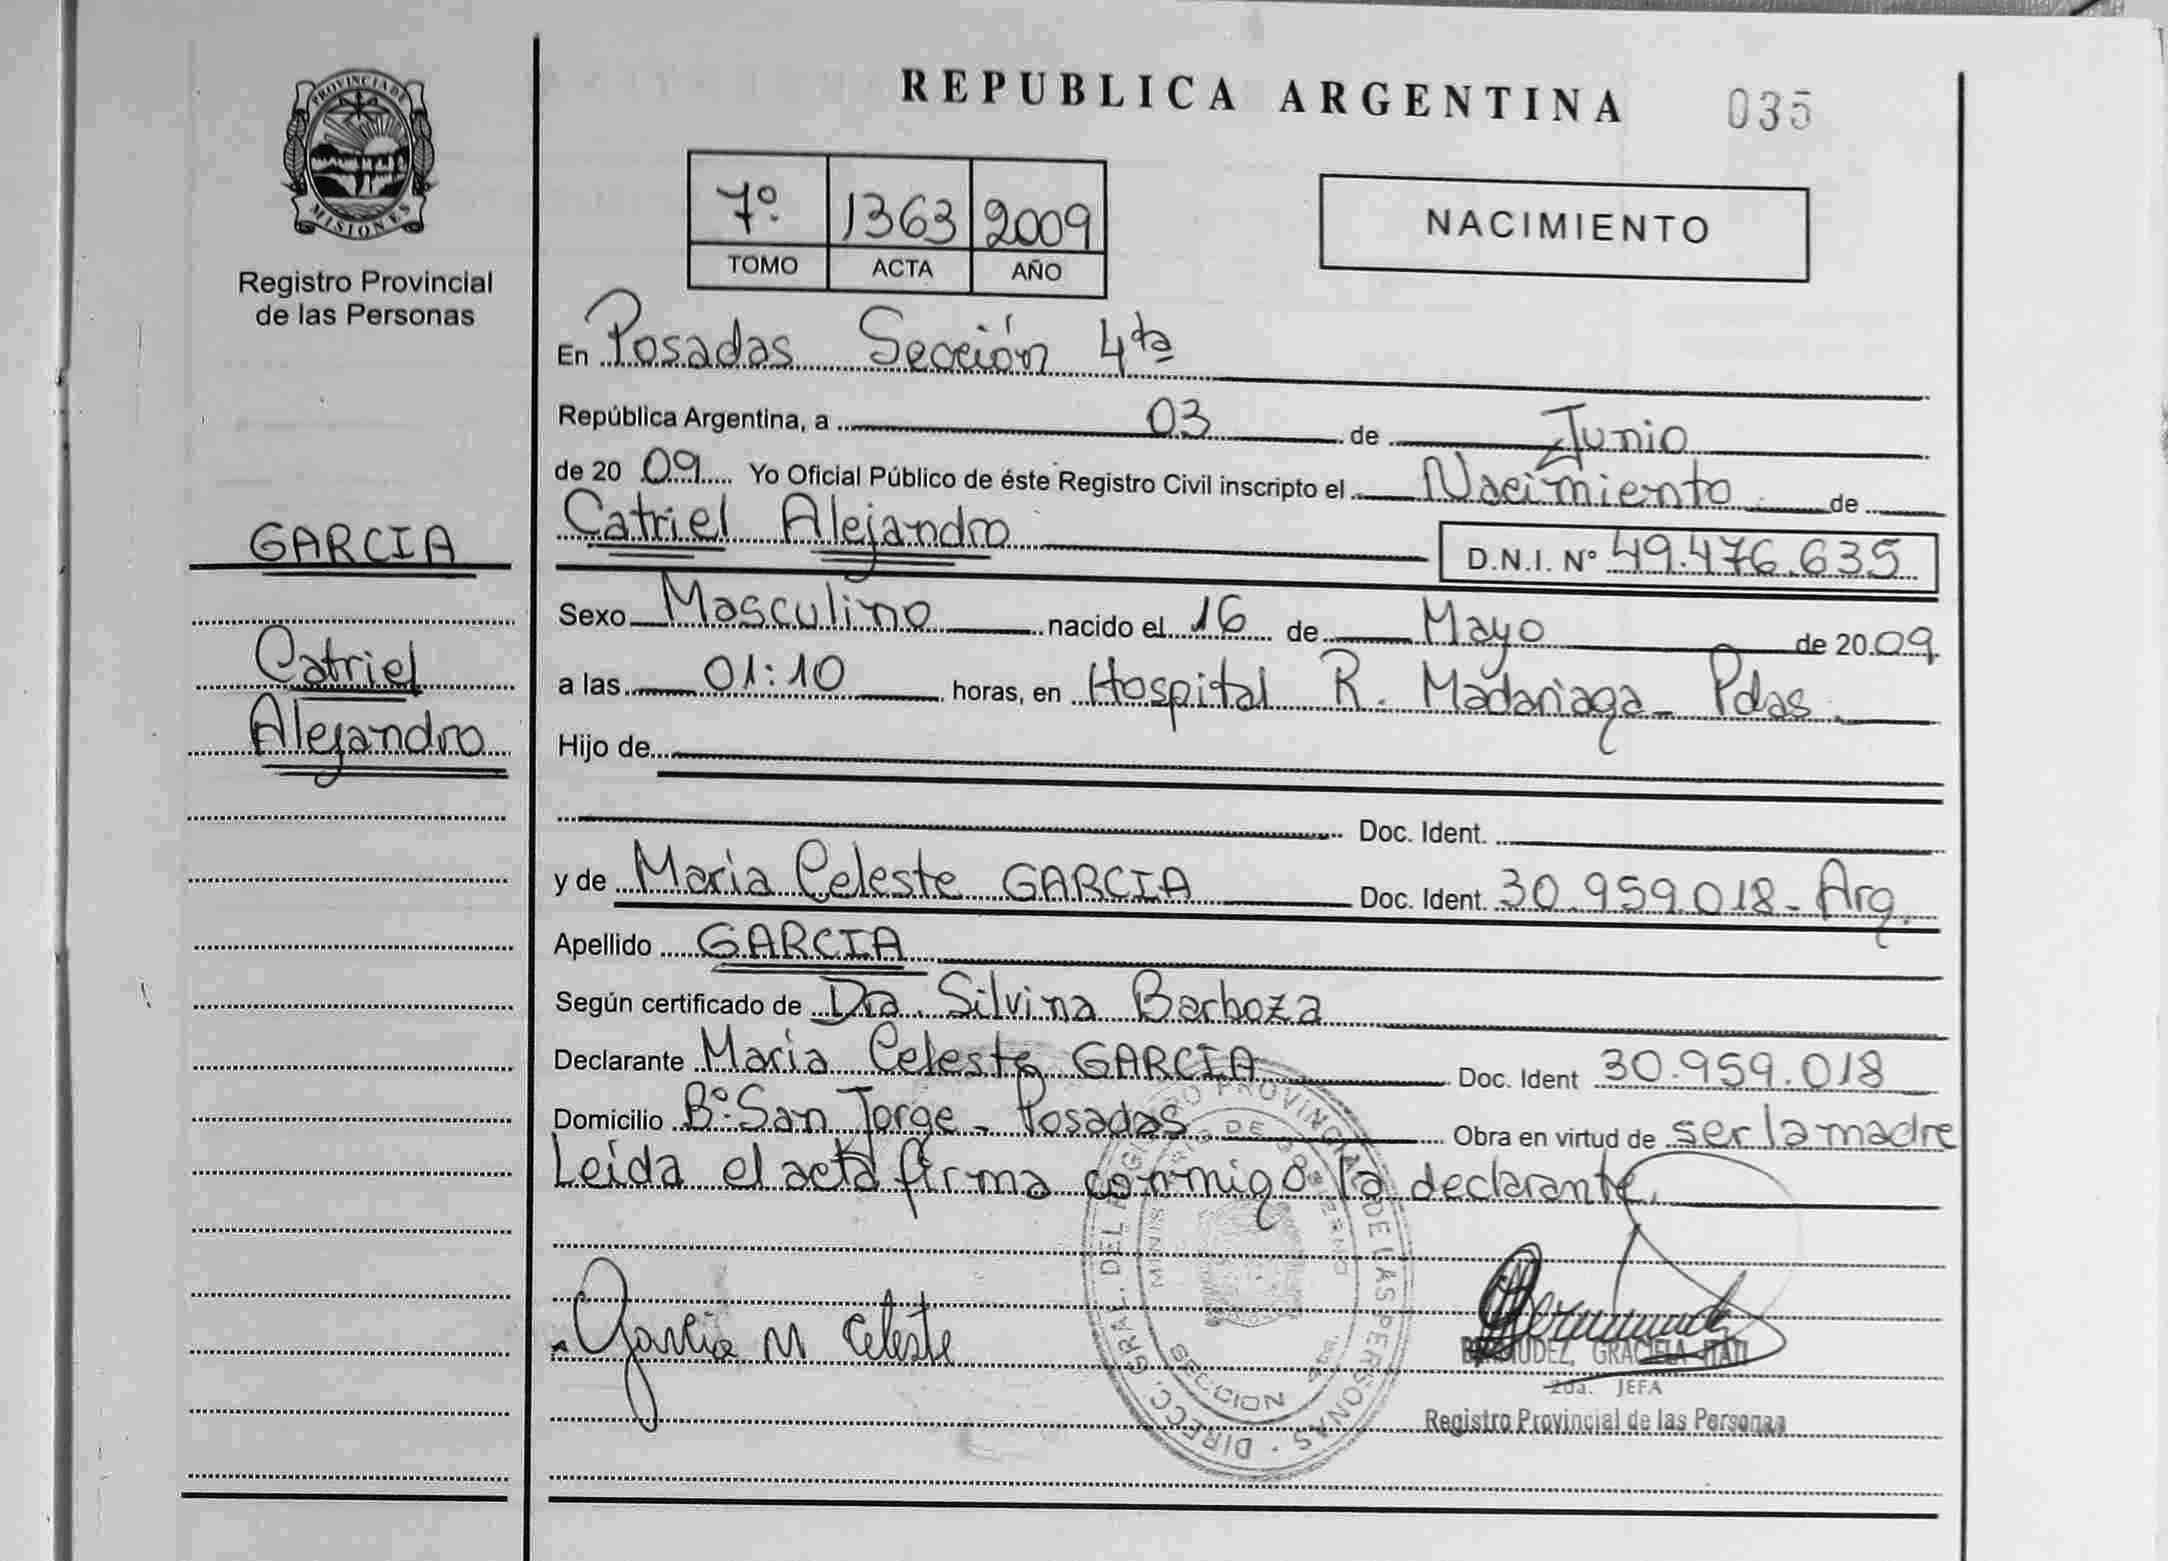 PROVINCIA DE
MISIONES
Registro Provincial
de las Personas
GARCIA
Catriel
Alejandro
REPUBLICA ARGENTINA 035
7º 1363 2009
TOMO ACTA AÑO
NACIMIENTO
En Posadas Sección 4ta
República Argentina, a 03 de Junio
de 20 09 Yo Oficial Público de éste Registro Civil inscripto el Nacimiento de
Catriel Alejandro
D.N.I. Nº 49.476.635
Sexo Masculino nacido el 16 de Mayo de 20 09
a las 01:10 horas, en Hospital R. Madariaga - Pdas.
Hijo de
Doc. Ident.
y de Maria Celeste GARCIA Doc. Ident. 30.959.018 - Arg.
Apellido GARCIA
Según certificado de Dra. Silvina Barboza
Declarante Maria Celeste GARCIA Doc. Ident 30.959.018
Domicilio Bº San Jorge - Posadas Obra en virtud de ser la madre
Leída el acta firma conmigo la declarante.
Garcia M Celeste
BERMUDEZ, GRACIELA ITATI
2da. JEFA
Registro Provincial de las Personas
DIRECC. GRAL. DEL REGISTRO PROVINCIAL DE LAS PERSONAS
MINISTERIO DE GOBIERNO
SECCION 4ta.